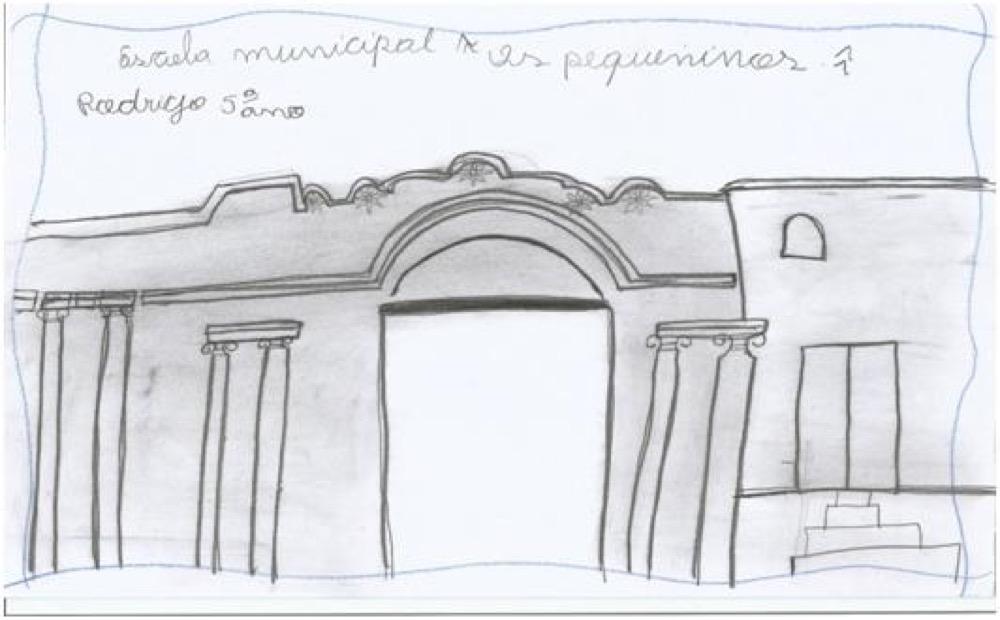 Escola municipal os pequeninos.
Rodrigo 5º ano